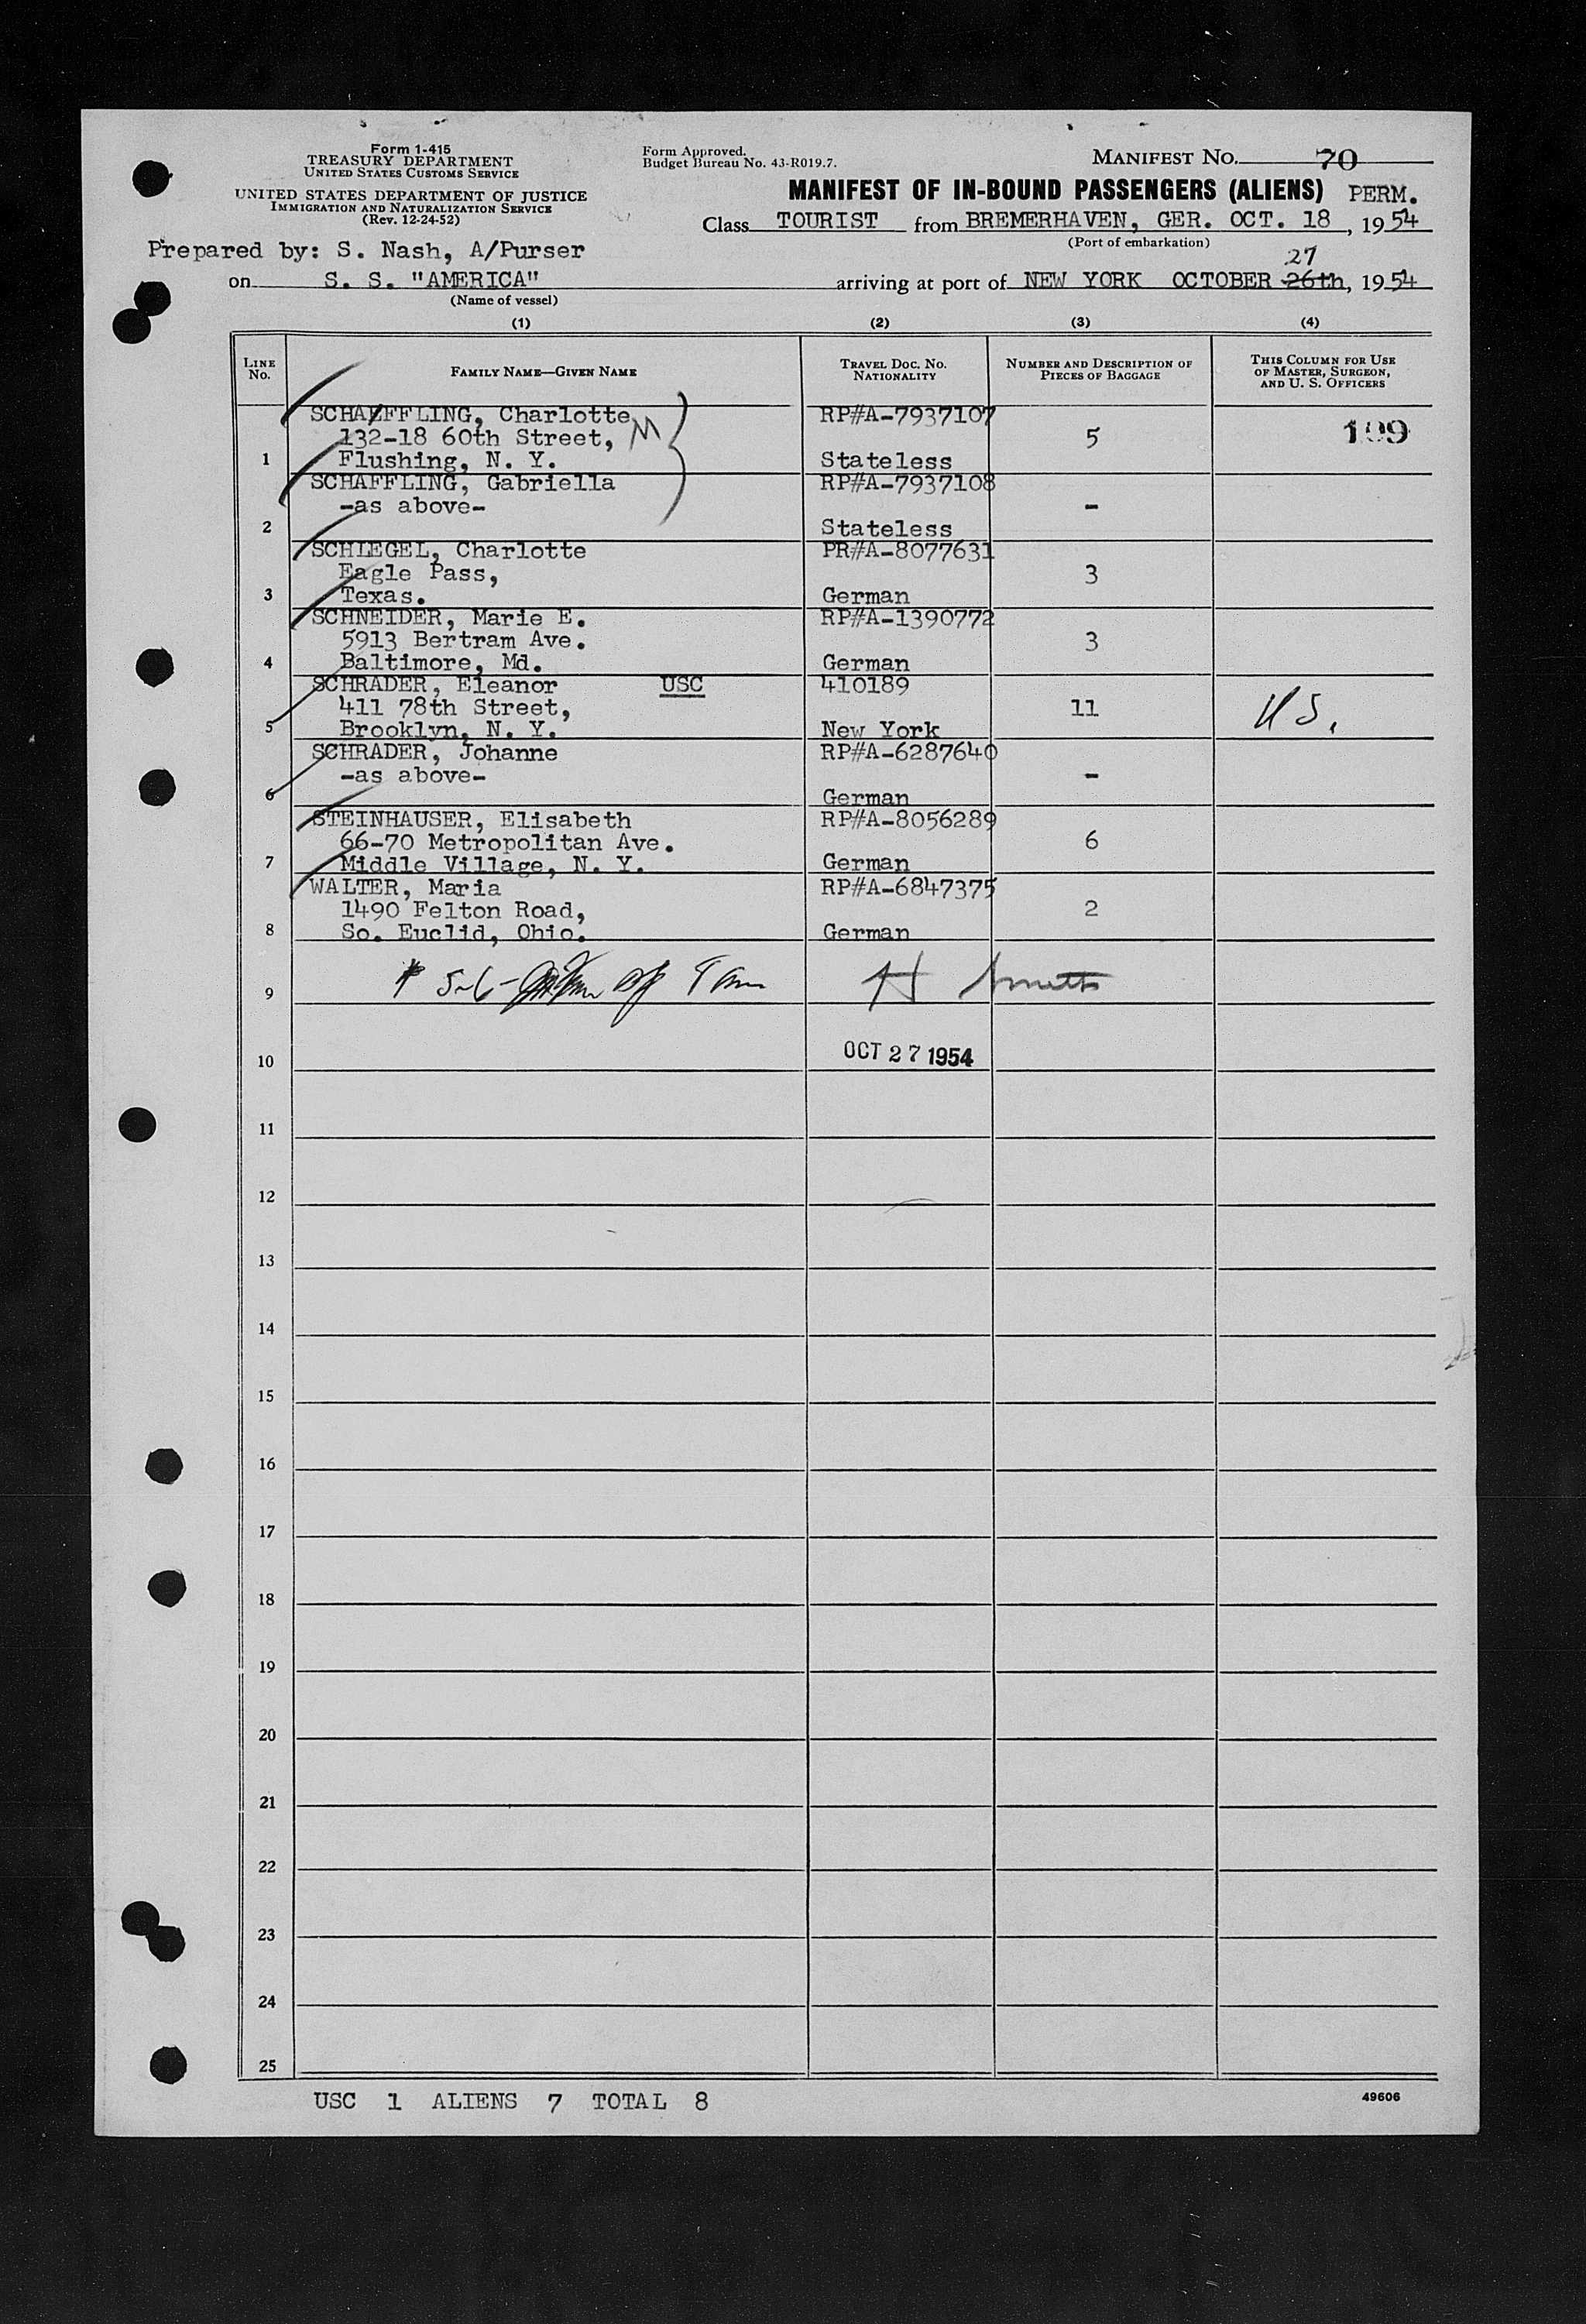 Form I-415
TREASURY DEPARTMENT
UNITED STATES CUSTOMS SERVICE
UNITED STATES DEPARTMENT OF JUSTICE
IMMIGRATION AND NATURALIZATION SERVICE
(Rev. 12-24-52)
Form Approved.
Budget Bureau No. 43-R019.7.
MANIFEST NO. 70
MANIFEST OF IN-BOUND PASSENGERS (ALIENS) PERM.
Class TOURIST from BREMERHAVEN, GER. OCT. 18, 1954
(Port of embarkation)
Prepared by: S. Nash, A/Purser
27
on S. S. "AMERICA" arriving at port of NEW YORK OCTOBER 26th, 1954
(Name of vessel)
(1) (2) (3) (4)
LINE No. FAMILY NAME—GIVEN NAME TRAVEL DOC. NO. NATIONALITY NUMBER AND DESCRIPTION OF PIECES OF BAGGAGE THIS COLUMN FOR USE OF MASTER, SURGEON, AND U. S. OFFICERS
SCHAEFFLING, Charlotte RP#A-7937107
132-18 60th Street, M 5 199
1 Flushing, N. Y. Stateless
SCHAFFLING, Gabriella RP#A-7937108
-as above- -
2 Stateless
SCHIEGEL, Charlotte PR#A-8077631
Eagle Pass, 3
3 Texas. German
SCHNEIDER, Marie E. RP#A-1390772
5913 Bertram Ave. 3
4 Baltimore, Md. German
SCHRADER, Eleanor USC 410189
411 78th Street, 11 US.
5 Brooklyn, N. Y. New York
SCHRADER, Johanne RP#A-6287640
-as above- -
6 German
STEINHAUSER, Elisabeth RP#A-8056289
66-70 Metropolitan Ave. 6
7 Middle Village, N. Y. German
WALTER, Maria RP#A-6847375
1490 Felton Road, 2
8 So. Euclid, Ohio. German
9 5-6-
10 OCT 27 1954
11
12
13
14
15
16
17
18
19
20
21
22
23
24
25
USC 1 ALIENS 7 TOTAL 8
49606